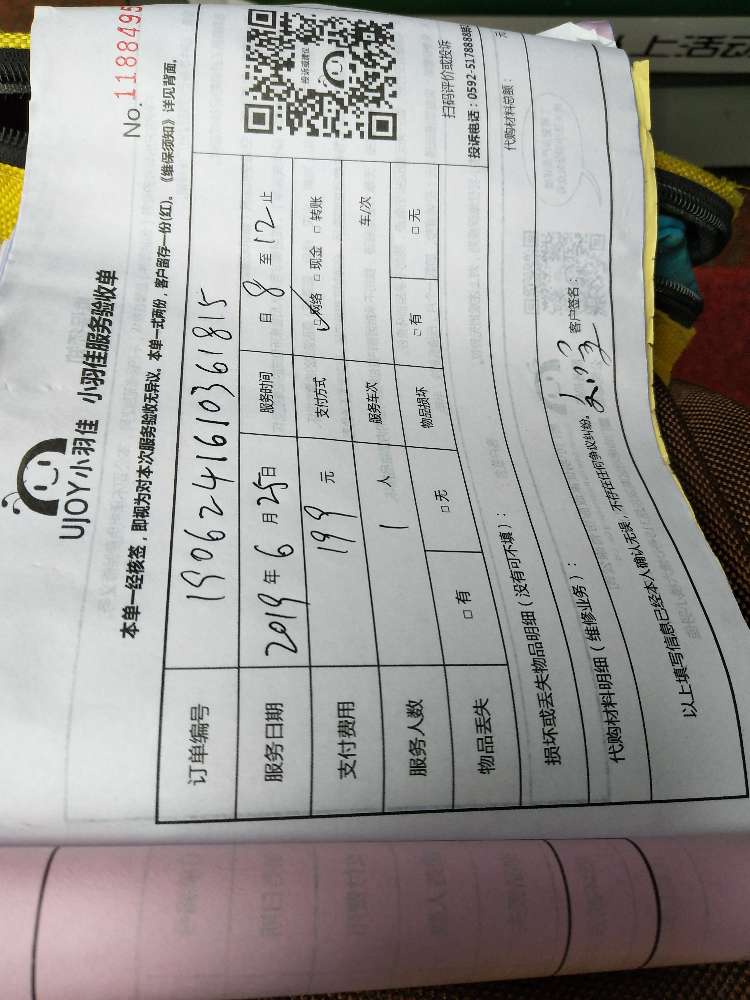 UJOY小羽佳 小羽佳服务验收单
No.1188495
本单一经核签，即视为对本次服务验收无异议。本单一式两份，客户留存一份(红)。《维保须知》详见背面。
订单编号 1906241610361815
服务日期 2019年6月25日 服务时间 自8至12止
支付费用 199元 支付方式 ☑网络 □现金 □转账
服务人数 1人 服务车次 车/次
物品丢失 □有 □无 物品损坏 □有 □无
扫码评价或投诉
投诉电话：0592-5178888
损坏或丢失物品明细（没有可不填）：
代购材料明细（维修业务）：
代购材料总额： 元
以上填写信息已经本人确认无误，不存在任何争议纠纷。 客户签名：
以上活动